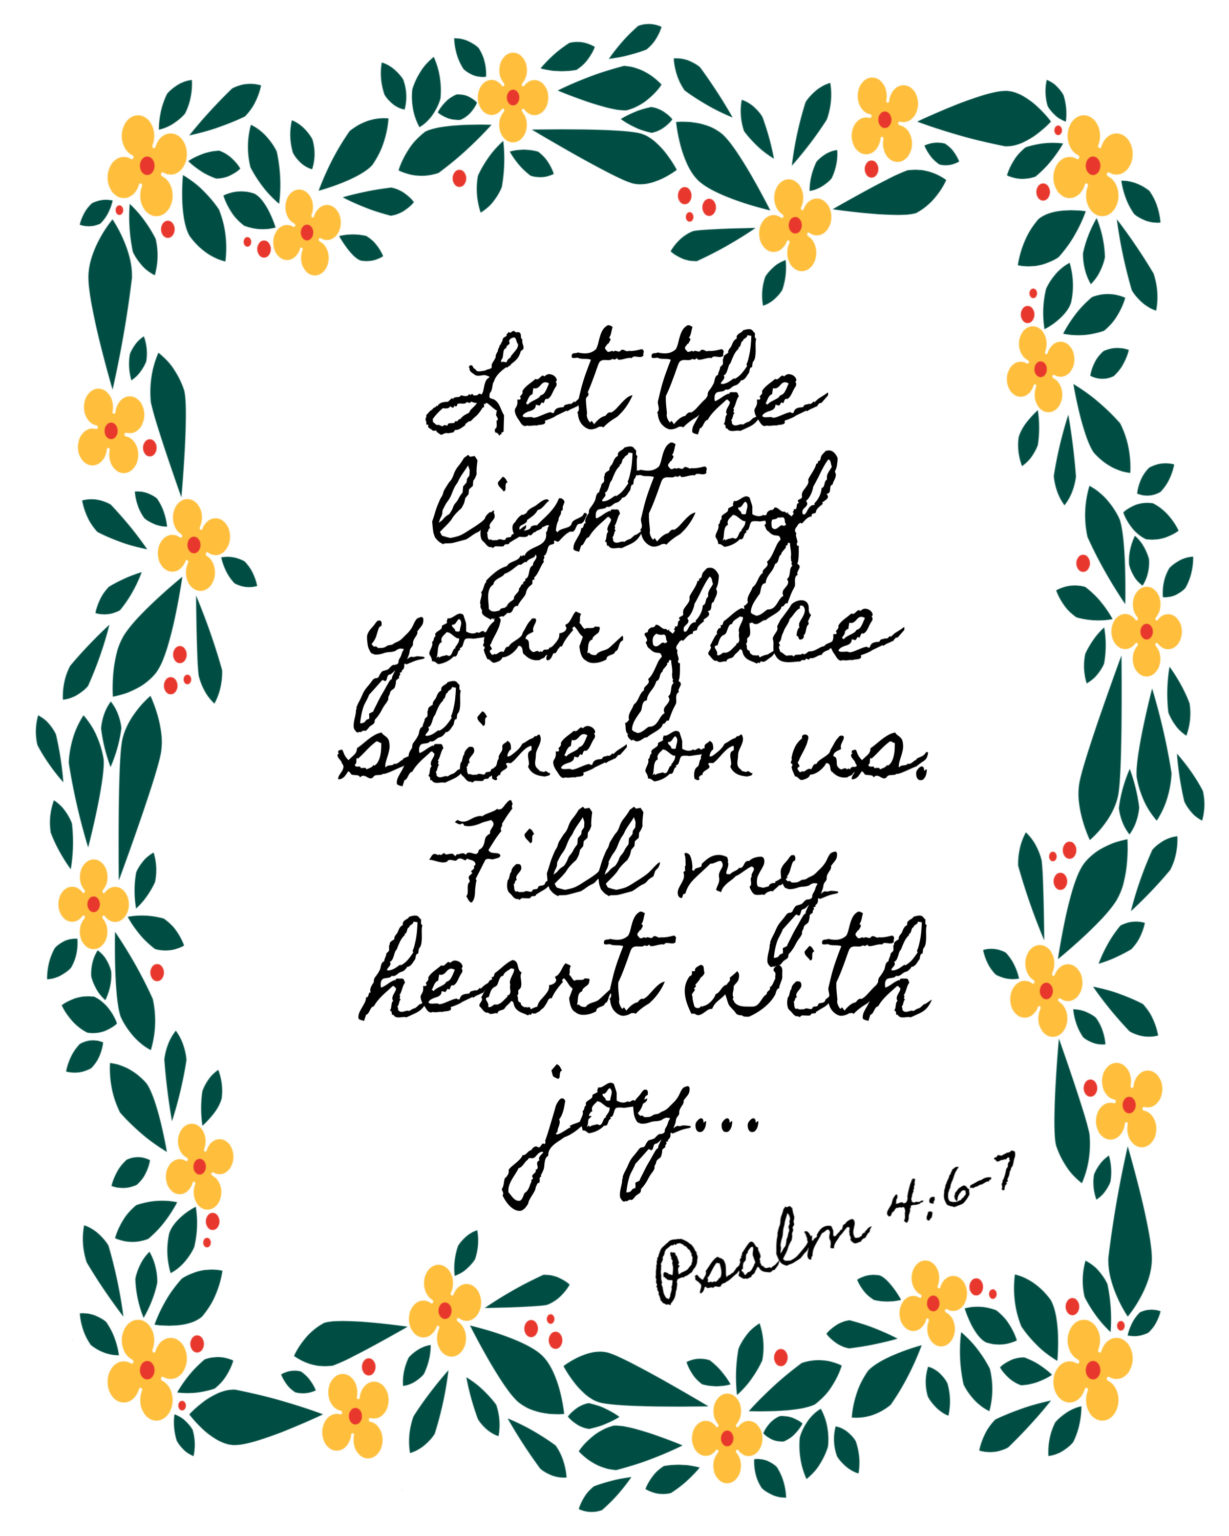 Let the
light of
your face
shine on us.
Fill my
heart with
joy...
Psalm 4:6-7